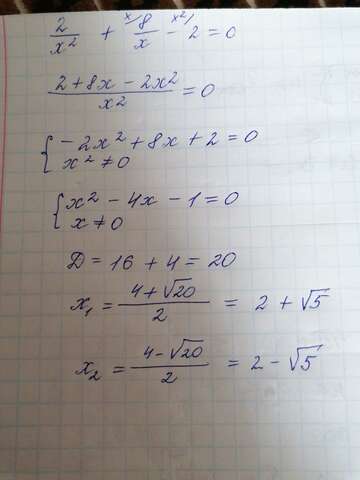 2/x² + 8/x - 2 = 0 x) x²)
(2 + 8x - 2x²)/x² = 0
{ -2x² + 8x + 2 = 0
x² ≠ 0
{ x² - 4x - 1 = 0
x ≠ 0
D = 16 + 4 = 20
x₁ = (4 + √20)/2 = 2 + √5
x₂ = (4 - √20)/2 = 2 - √5